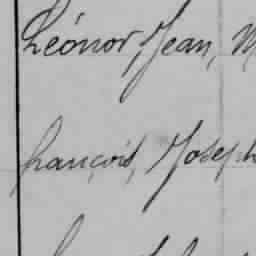 Léonor, Jean, M
François, Joseph